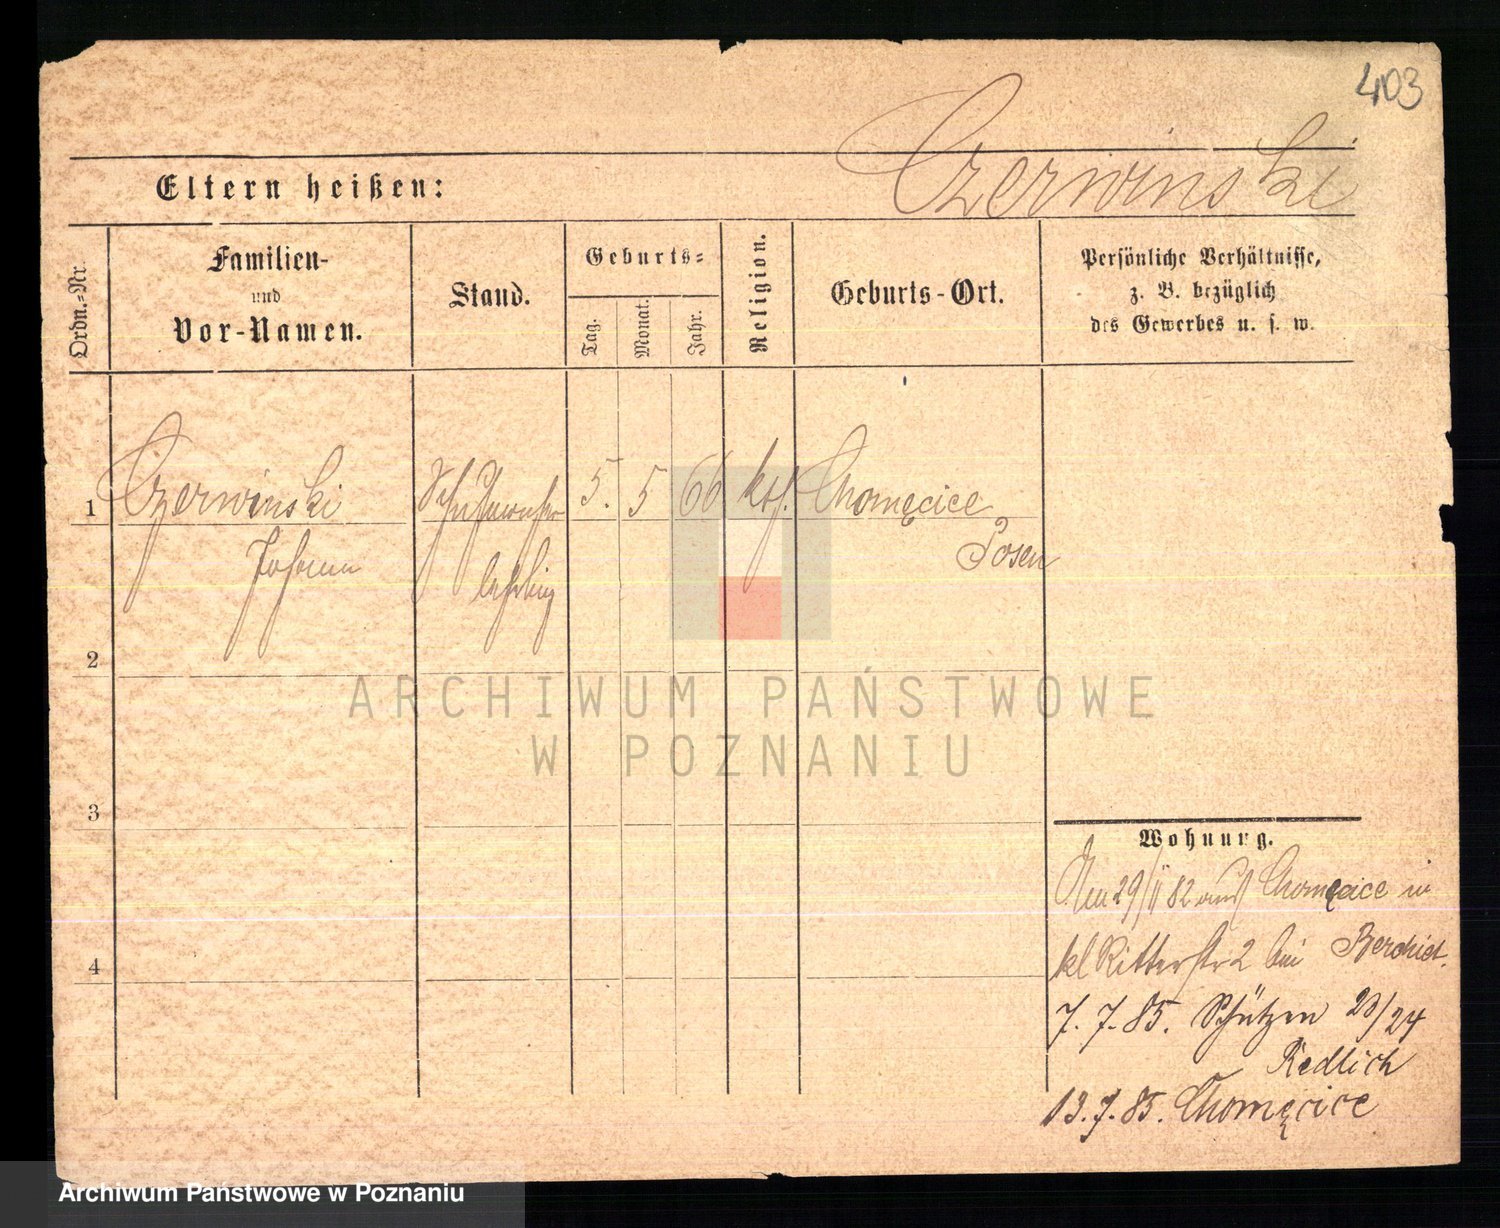 403
Czerwinski
Eltern heißen:
Ordn.=Nr.
Familien-
und
Vor-Namen.
Stand.
Geburts=
Tag.
Monat.
Jahr.
Religion.
Geburts-Ort.
Persönliche Verhältnisse,
z. B. bezüglich
des Gewerbes u. s. w.
1 Czerwinski Schuhmacher 5. 5 66 kth. Chomęcice
Johann lehrling Posen
2
3
4
Wohnung.
29/11 82 aus Chomęcice in
kl Ritterstr 2 bei
7. 7. 85. Schützen 23/24
Redlich
13. 7. 85. Chomęcice
ARCHIWUM PAŃSTWOWE
W POZNANIU
Archiwum Państwowe w Poznaniu